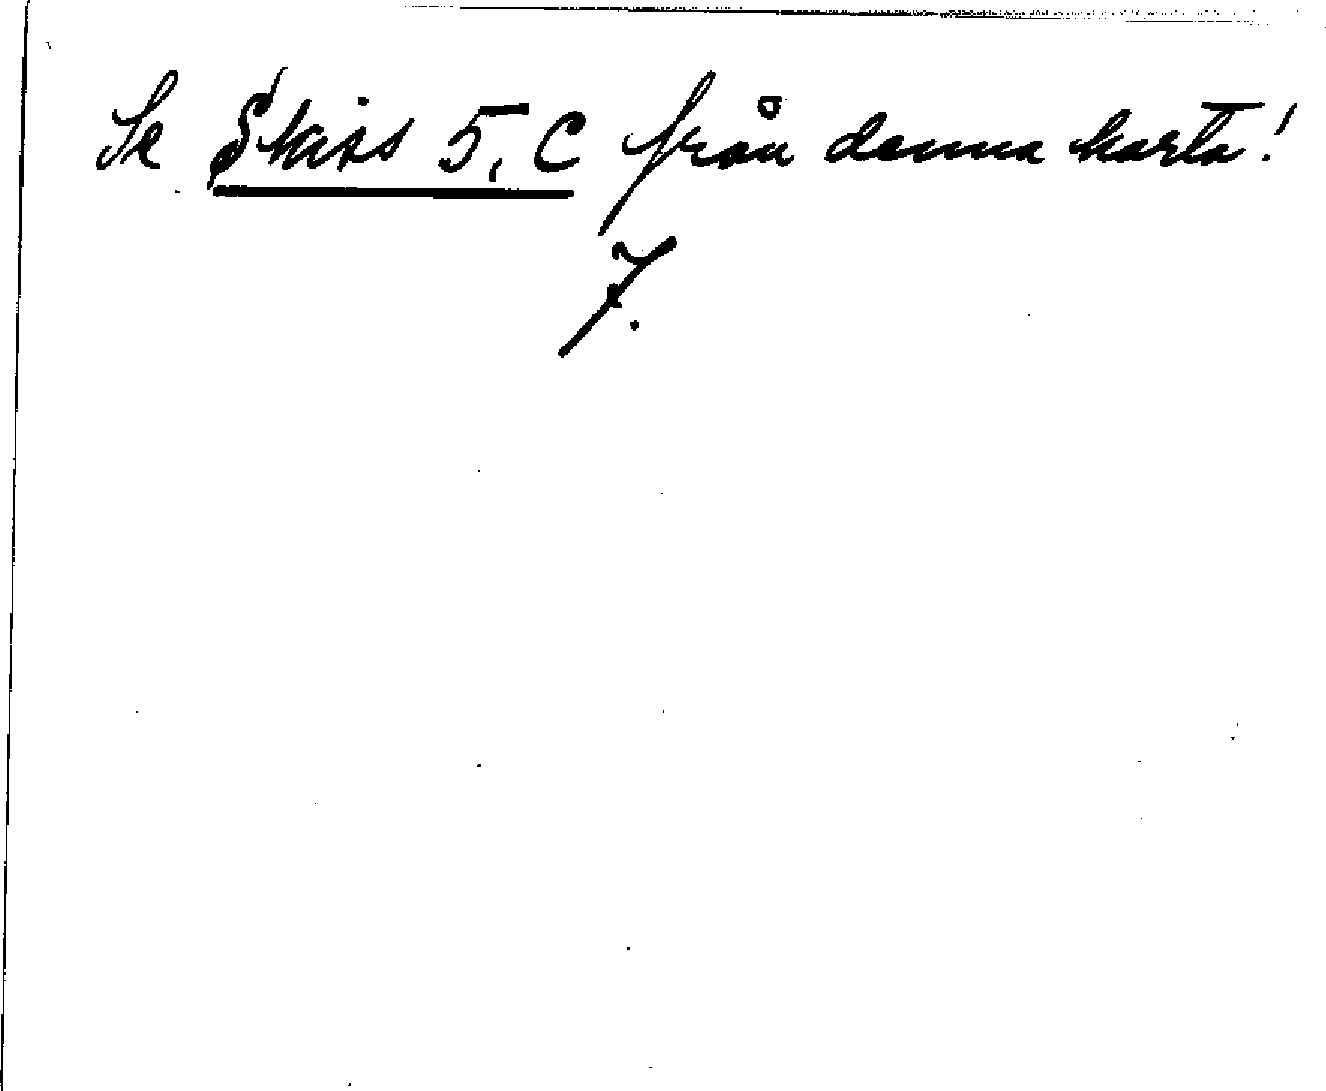 Se Skiss 5, C från denna karta!
7.